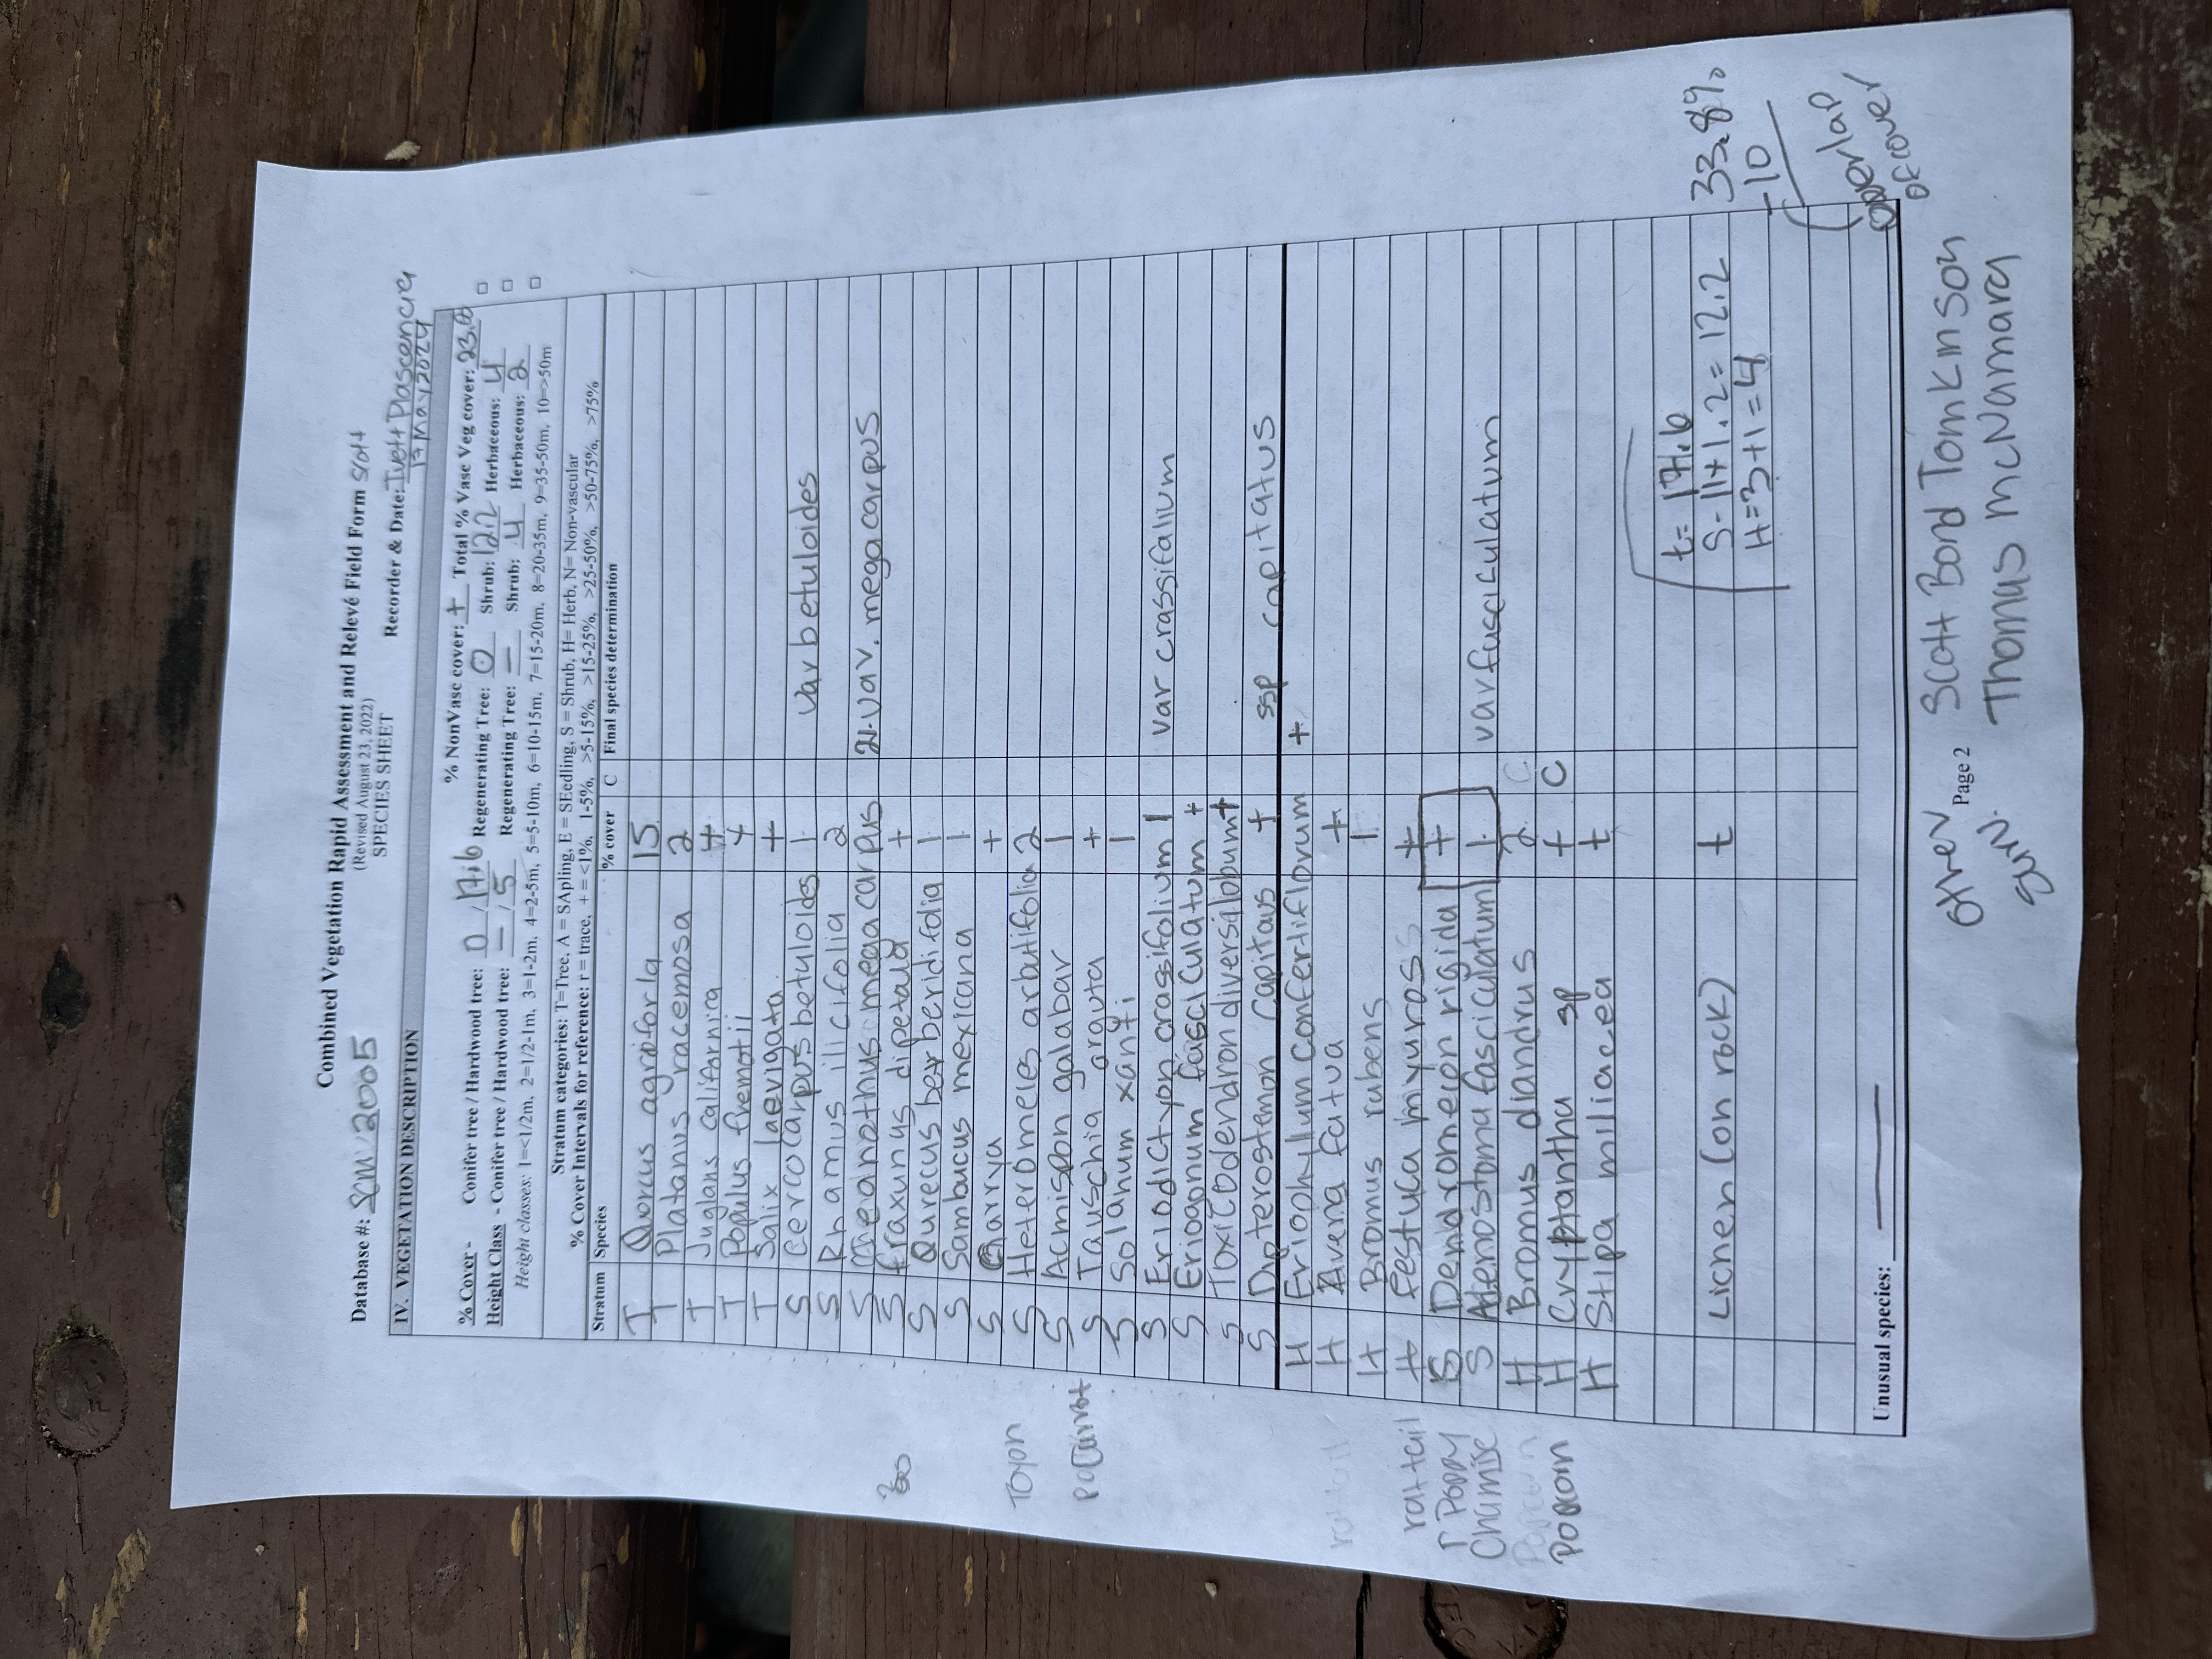 Combined Vegetation Rapid Assessment and Relevé Field Form
(Revised August 23, 2022)
SPECIES SHEET
Database #: SCMW2005
Recorder & Date: Ivett Plascencia
17 May 2024
IV. VEGETATION DESCRIPTION
% NonVasc cover: + Total % Vasc Veg cover: 23.8
% Cover - Conifer tree / Hardwood tree: 0 / 17.6 Regenerating Tree: 0 Shrub: 12.2 Herbaceous: 4
Height Class - Conifer tree / Hardwood tree: — / 5 Regenerating Tree: — Shrub: 4 Herbaceous: 2
Height classes: 1=<1/2m, 2=1/2-1m, 3=1-2m, 4=2-5m, 5=5-10m, 6=10-15m, 7=15-20m, 8=20-35m, 9=35-50m, 10=>50m
Stratum categories: T=Tree, A = SApling, E = SEedling, S = Shrub, H= Herb, N= Non-vascular
% Cover Intervals for reference: r = trace, + = <1%, 1-5%, >5-15%, >15-25%, >25-50%, >50-75%, >75%
Stratum Species % cover C Final species determination
T Quercus agrifiorla 15
T Platanus racemosa 2
T Juglans californica +
T Populus fremotii +
T Salix laevigata +
S Cercocarpus betuloides 1 var betuloides
S Rhamus ilicifolia 2
S Ceeanothus megacarpus 2 var. megacarpus
S fraxunus dipetala +
S Qurecus berberidifolia 1
S Sambucus mexicana 1
S Garrya +
Toyon S Heteromeles arbutifolia 2
S Acmispon galabar 1
S Tauschia arguta +
S Solanum xanti 1
S Eriodictyon crassifolium 1 var crassifalium
S Eriogonum fasciculatum +
S Toxicodendron diversilobum +
S Dipterostemon capitaus + ssp capitatus
H Eriophyllum confertiflorum +
H Avena fatua +
H Bromus rubens 1
rattail H Festuca miyuros +
r Poppy S Dendromecon rigida +
Chamise S Adenostoma fasciculatum 1 var fusciculatum
H Bromus diandrus 2 C
Popcorn H Cryptantha sp + C
H Stipa miliacea t
t = 17.6
Lichen (on rock) t S - 11+1.2 = 12.2 33.8%
H = 3+1 = 4 -10
(overlap
of cover
Unusual species:
Page 2
other Scott Bond Tomkinson
surv. Thomas McNamara